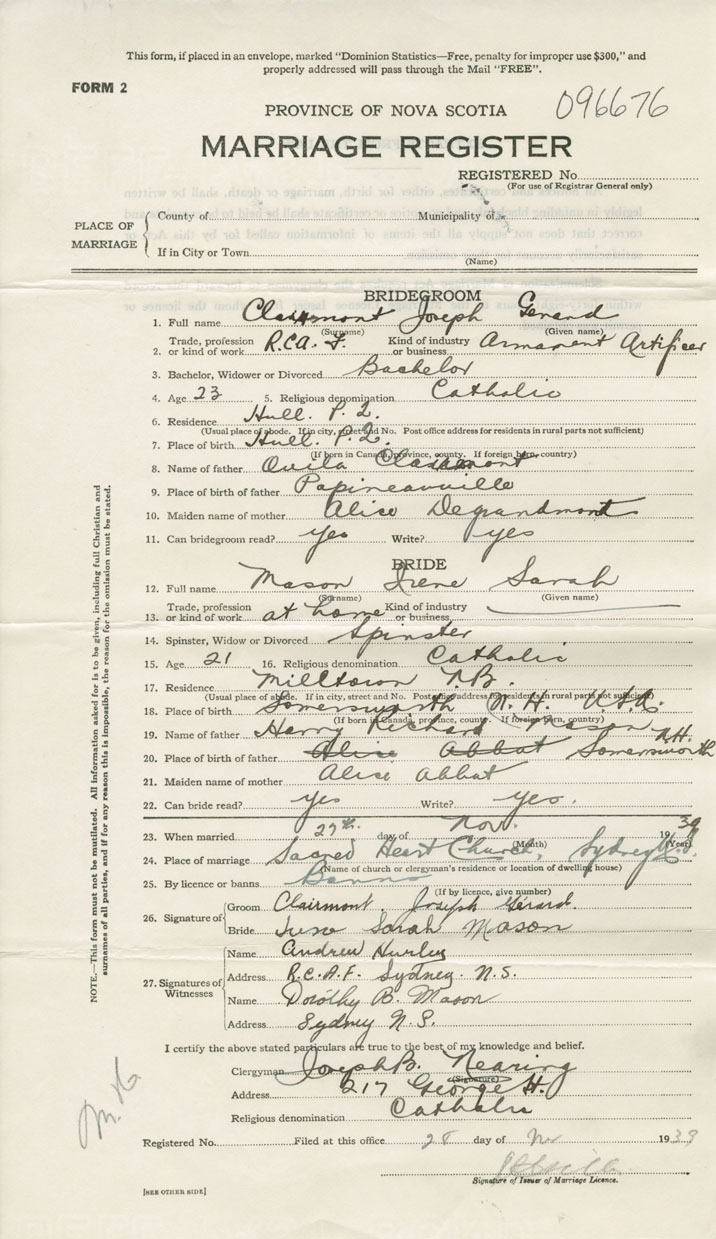 This form, if placed in an envelope, marked "Dominion Statistics—Free, penalty for improper use $300," and
properly addressed will pass through the Mail "FREE".
FORM 2
096676
PROVINCE OF NOVA SCOTIA
MARRIAGE REGISTER
REGISTERED No.
(For use of Registrar General only)
PLACE OF MARRIAGE
County of Municipality of
If in City or Town
(Name)
BRIDEGROOM
1. Full name Joseph Gerard
(Surname) (Given name)
2. Trade, profession or kind of work R.C.A.F. Kind of industry or business Armament Artificer
3. Bachelor, Widower or Divorced Bachelor
4. Age 23 5. Religious denomination Catholic
6. Residence Hull. P.Q.
(Usual place of abode. If in city, street and No. Post office address for residents in rural parts not sufficient)
7. Place of birth Hull. P.Q.
(If born in Canada, province, county. If foreign born, country)
8. Name of father Ovila
9. Place of birth of father Papineauville
10. Maiden name of mother Alice Degrandmont
11. Can bridegroom read? yes Write? yes
BRIDE
12. Full name Mason Irene Sarah
(Surname) (Given name)
13. Trade, profession or kind of work at home Kind of industry or business
14. Spinster, Widow or Divorced Spinster
15. Age 21 16. Religious denomination Catholic
17. Residence Milltown N.B.
(Usual place of abode. If in city, street and No. Post office address for residents in rural parts not sufficient)
18. Place of birth Somersworth N.H. U.S.A.
(If born in Canada, province, county. If foreign born, country)
19. Name of father Harry Richard Mason
20. Place of birth of father Alice Abbat Somersworth N.H.
21. Maiden name of mother Alice Abbat
22. Can bride read? yes Write? yes.
23. When married 27th day of Nov. 1939
(Month) (Year)
24. Place of marriage Sacred Heart Church, Sydney N.S.
(Name of church or clergyman's residence or location of dwelling house)
25. By licence or banns Banns
(If by licence, give number)
26. Signature of
Groom Clairmont Joseph Gérard.
Bride Irene Sarah Mason
27. Signatures of Witnesses
Name Andrew Hurley
Address R.C.A.F. Sydney N.S.
Name Dorothy B. Mason
Address Sydney N.S.
I certify the above stated particulars are true to the best of my knowledge and belief.
Clergyman Joseph B. Nearing
(Signature)
Address 217 George St.
Religious denomination Catholic
Registered No. Filed at this office 28 day of Nov 1939
Signature of Issuer of Marriage Licence.
[SEE OTHER SIDE]
NOTE.—This form must not be mutilated. All information asked for is to be given, including full Christian and
surnames of all parties, and if for any reason this is impossible, the reason for the omission must be stated.